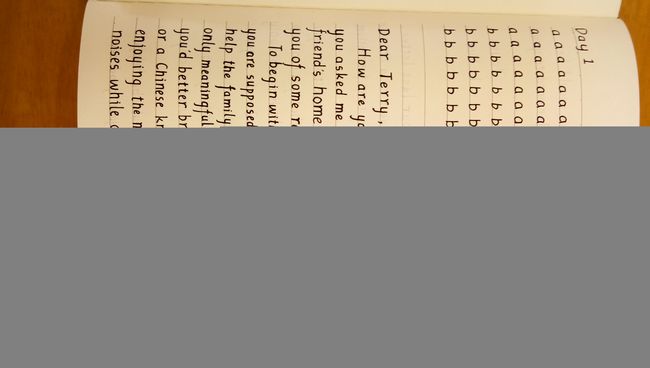 Day 1
a a a a a a a
a a a a a a a
a a a a a a a
b b b b b b b
b b b b b b b
b b b b b b b
Dear Terry,
How are yo
you asked me
friend's home
you of some re
To begin wit
you are supposed
help the family
only meaningful
you'd better br
or a Chinese kn
enjoying the m
noises while